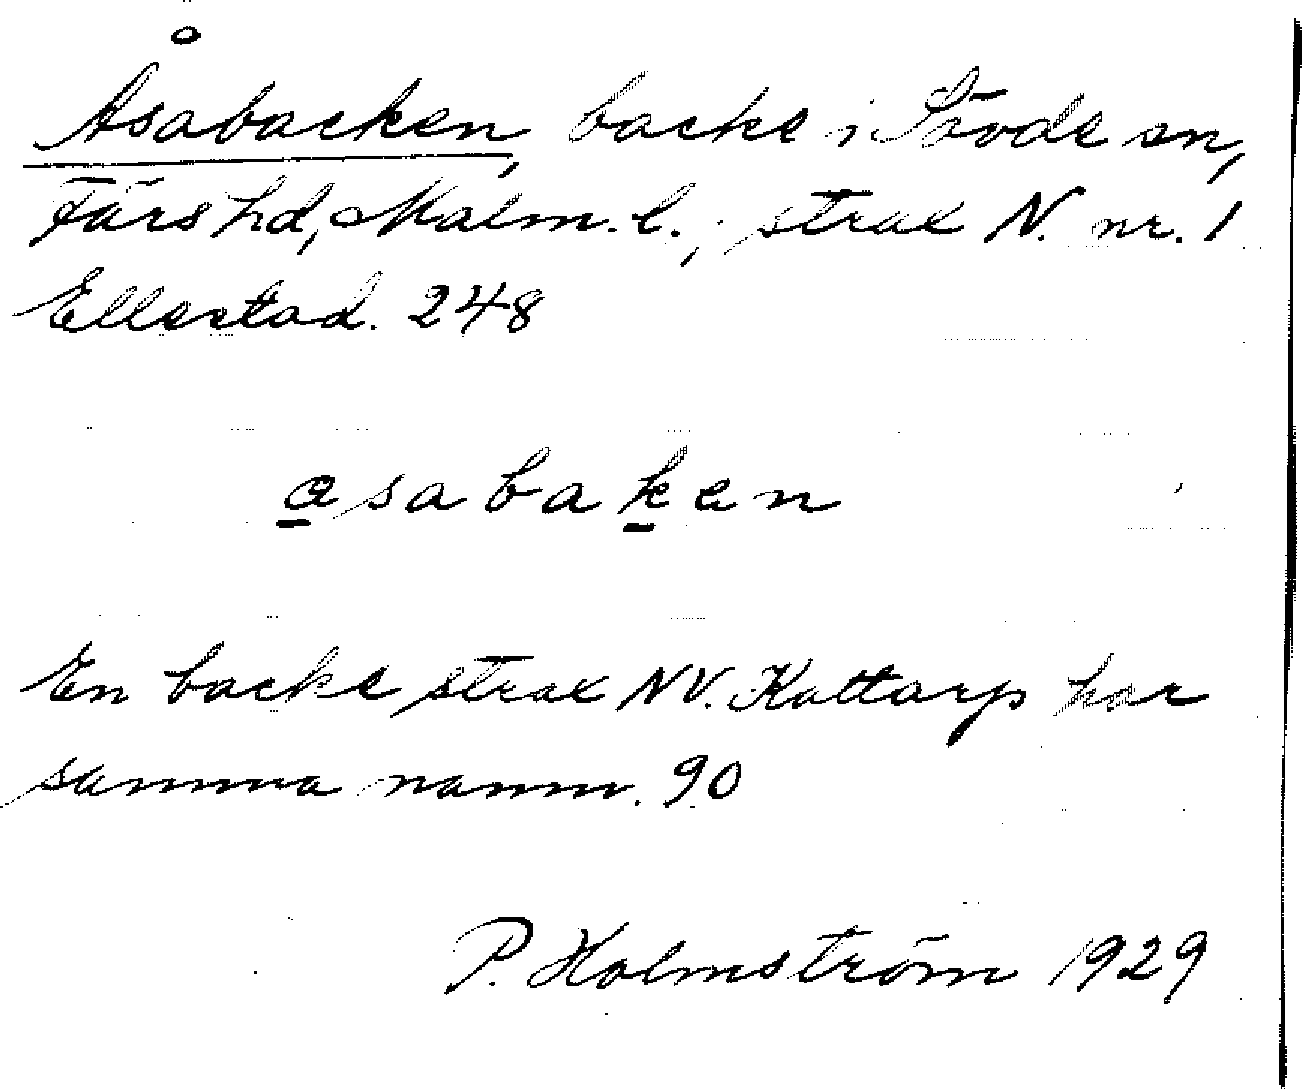 Åsabacken, backe i Sövde sn,
Färs hd, Malm. l.; strax N. nr. 1
Ellestad. 248
åsabaken
En backe strax NV. Kattarp har
samma namn. 90
P. Holmström 1929